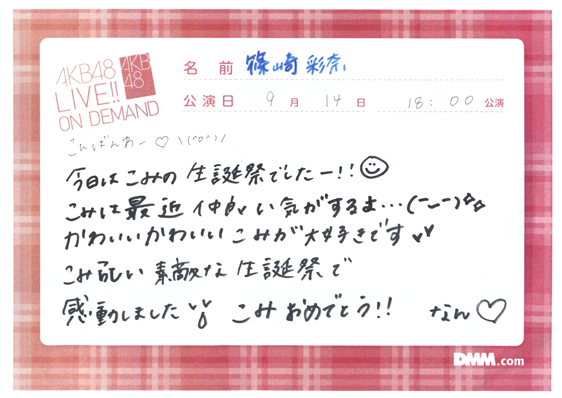 AKB48
LIVE!!
ON DEMAND
AKB
48
名 前 篠崎 彩奈
公演日 9 月 14 日 18:00 公演
こんばんわー♡ \(^o^)/
今日はこみの生誕祭でしたー!!☺
こみは最近仲良い気がするよ…(ーᴗー)☆☆
かわいいかわいいこみが大好きです
こみ らしい素敵な生誕祭で
感動しました こみおめでとう!! なん♡
DMM.com